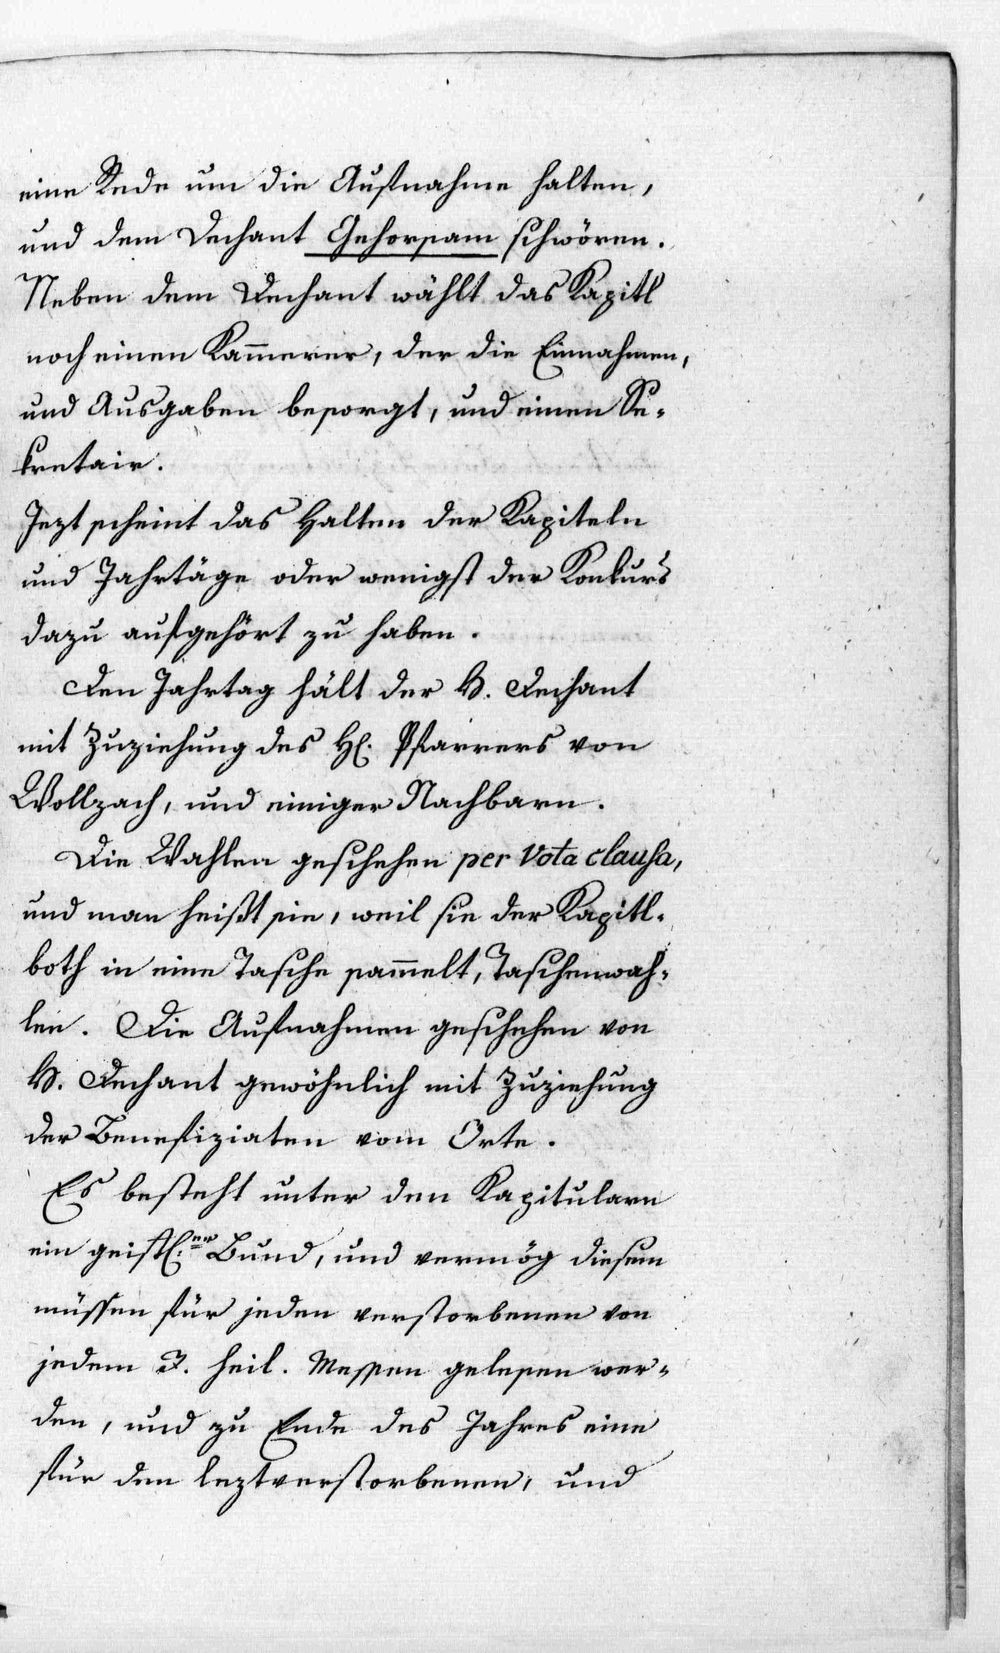 eine Rede um die Aufnahme halten,
und dem Dechant Gehorsam schwören.
Neben dem Dechant wählt das Kapitl
noch einen Kam̅erer, der die Einnahmen,
und Ausgaben besorgt, und einen Se-
kretair.
Jezt scheint das Halten der Kapiteln
und Jahrtäge oder wenigst der Konkurs
dazu aufgehört zu haben.
Den Jahrtag hält der H. Dechant
mit Zuziehung des H. Pfarrers von
Wollzach, und einiger Nachbarn.
Die Wahlen geschehen per Vota clausa,
und man heißt sie, weil sie der Kapitl-
both in eine Tasche sam̅elt, Taschenwah-
len. Die Aufnahmen geschehen von
H. Dechant gewöhnlich mit Zuziehung
der Benefiziaten vom Orte.
Es besteht unter den Kapitularn
ein geistl.er Bund, und vermög diesem
müssen für jeden verstorbenen von
jedem heil. Messen gelesen wer-
den, und zu Ende des Jahres eine
für den leztverstorbenen, und